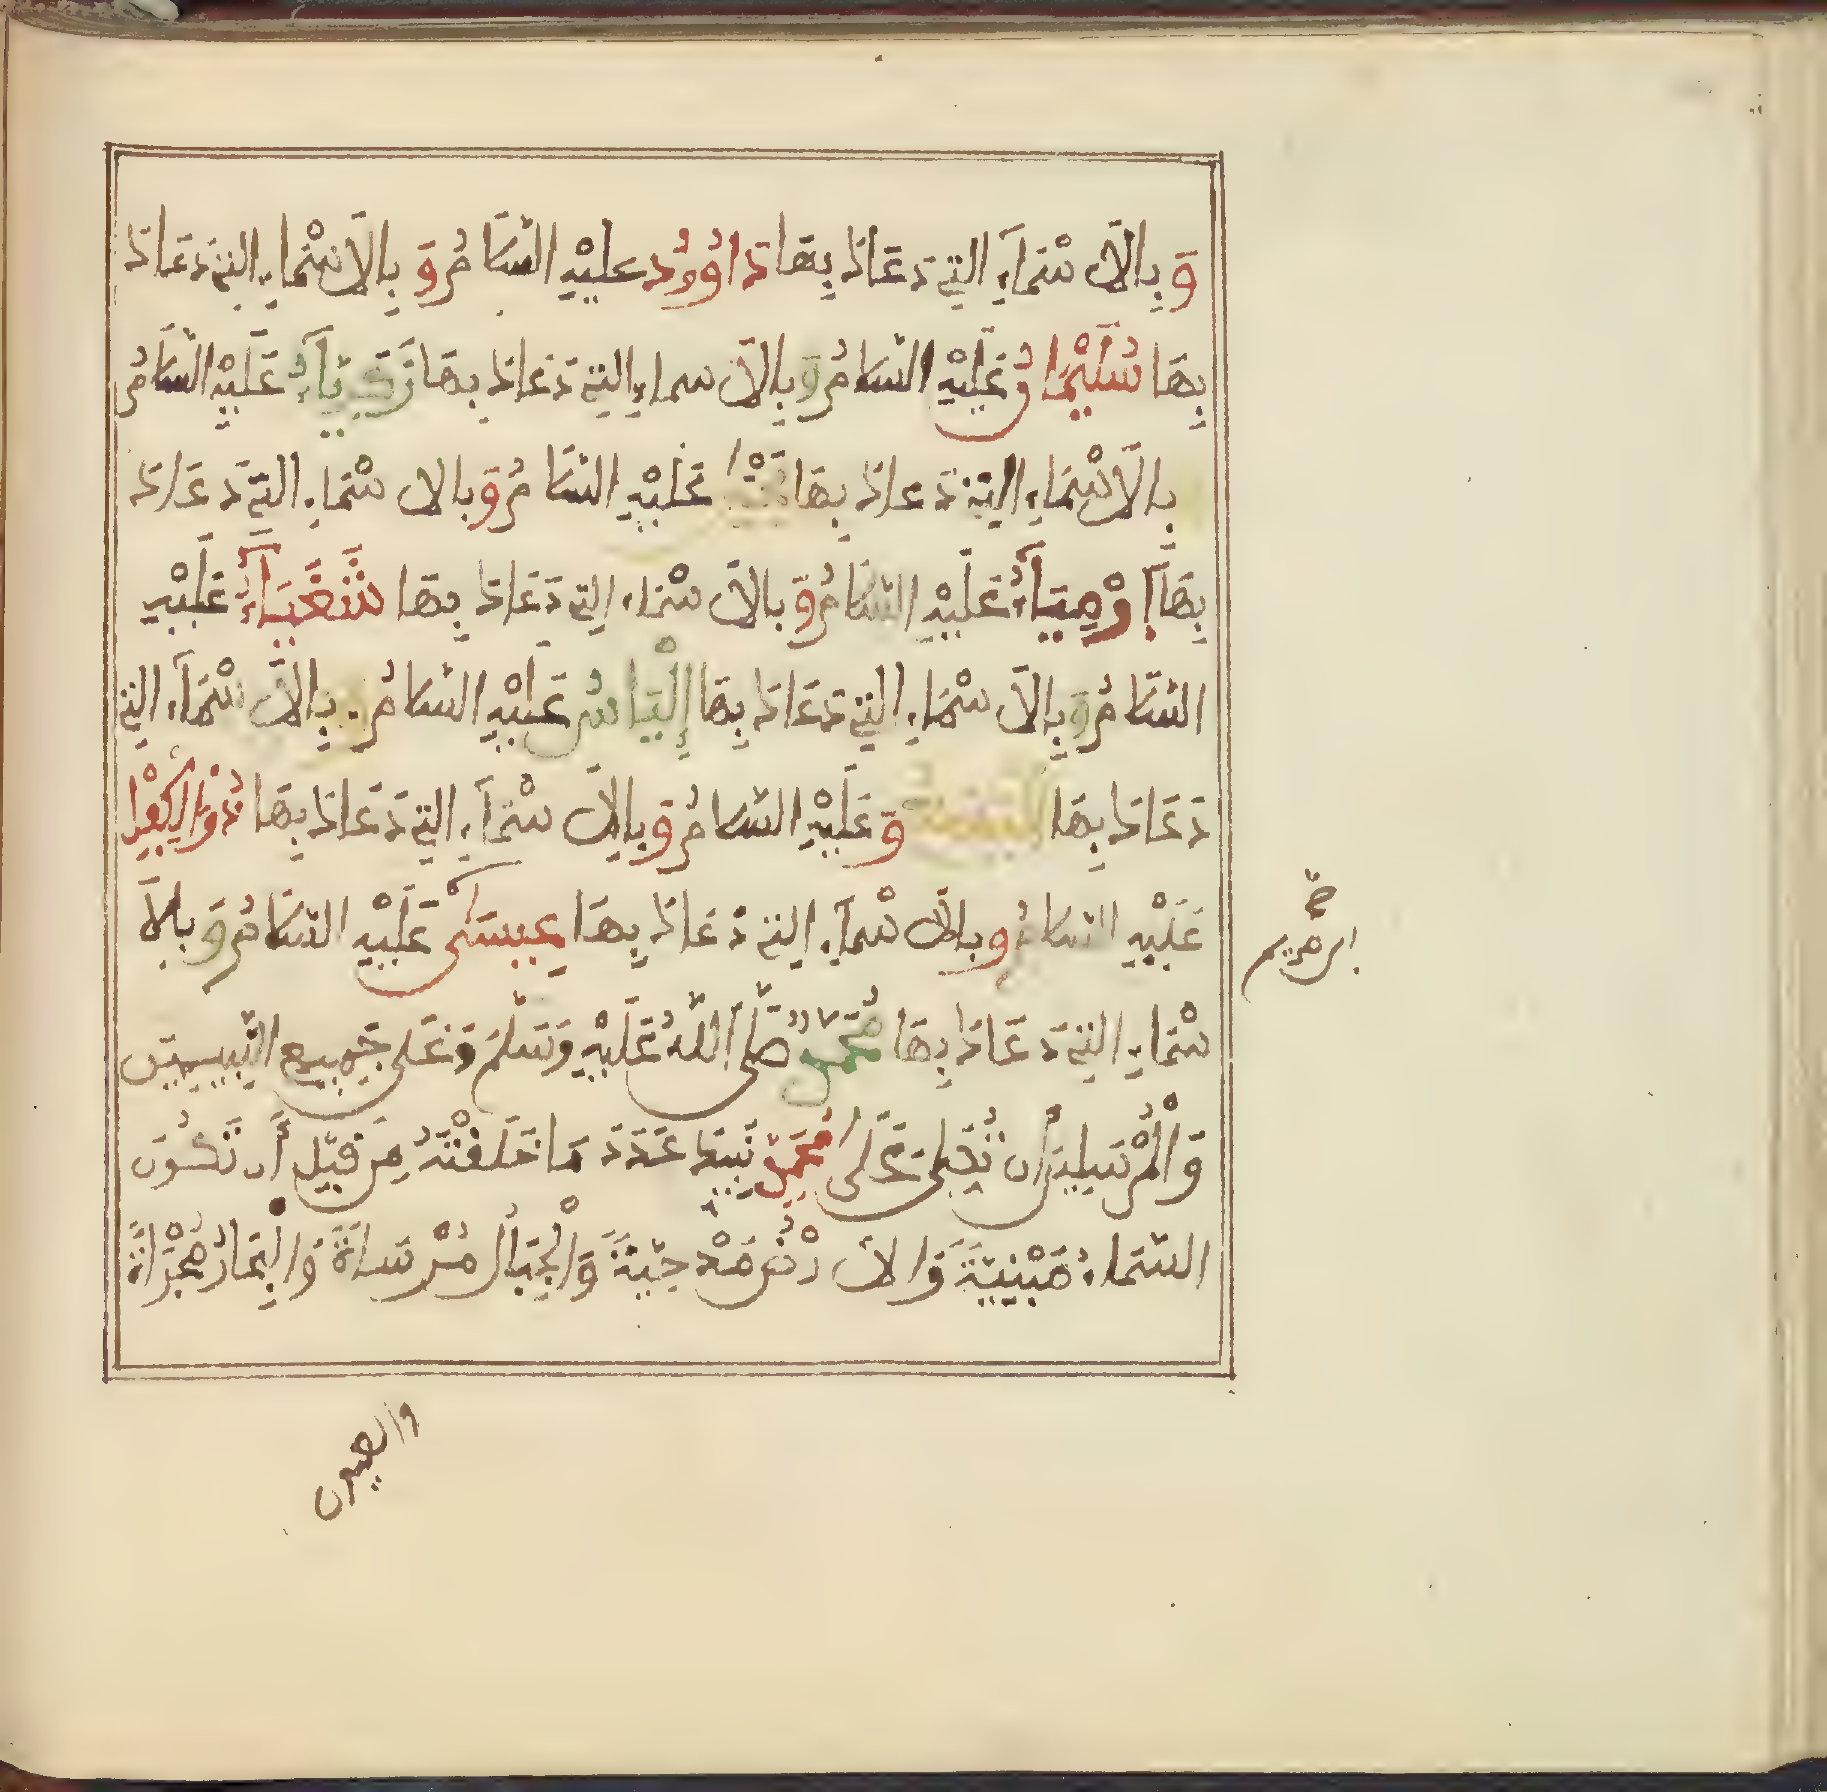 وَبِالَاسْمَآءِ التِي دَعَاكَ بِهَا دَاوُودُ عليْهِ السَّلَامُ وَبِالَاسْمَاءِ التِي دَعَاكَ
بِهَا سُلَيْمَانُ عَلَيْهِ السَّلَامُ وَبِالَاسماءِ التِي دَعَاكَ بِهَا زَكَرِيَّآءُ عَلَيْهِ السَّلَامُ
بِالَاسْمَاءِ التِي دَعاكَ بِهَا يَحْيَى عَلَيْهِ السَّلَامُ وَبالاسْمَاءِ التِي دَعَاكَ
بِهَآ أَرْمِيَآءُ عَلَيْهِ السَّلَامُ وَبالَاسْمَاءِ التِي دَعَاكَ بِهَا شَعْيَآءُ عَلَيْهِ
السَّلَامُ وَبِالَاسْمَاءِ التِي دَعَاكَ بِهَا إِلْيَاسُ عَلَيْهِ السَّلَامُ وَبِالَاسْمَآءِ التِي
دَعَاكَ بِهَا اليَسَعُ عَلَيْهِ السَّلَامُ وَبِالَاسْمَآءِ التِي دَعَاكَ بِهَا ذُو الْكِفْلِ
عَلَيْهِ السَّلَامُ وبالَاسْمَآءِ التِي دَعَاكَ بِهَا عِيسَى عَلَيْهِ السَّلَامُ وَبِالَا
سْمَاءِ التِي دَعَاكَ بِهَا مُحَمَّدٌ صَلَّى اللَّهُ عَلَيْهِ وَسَلَّمَ وَعَلَى جَمِيعِ النَّبِيِّينَ
وَالْمُرْسَلِينَ أَن تُصَلِّيَ عَلَى مُحَمَّدٍ نَبِيِّكَ عَدَدَ مَا خَلَقْتَهُ مِن قَبْلِ أَن تَكُونَ
السَّمَاءُ مَبْنِيَّةً وَالَارْضُ مَدْحِيَّةً وَالْجِبَالُ مُرْسَاةً وَالْبِحَارُ مُجْرَاةً
والعيون